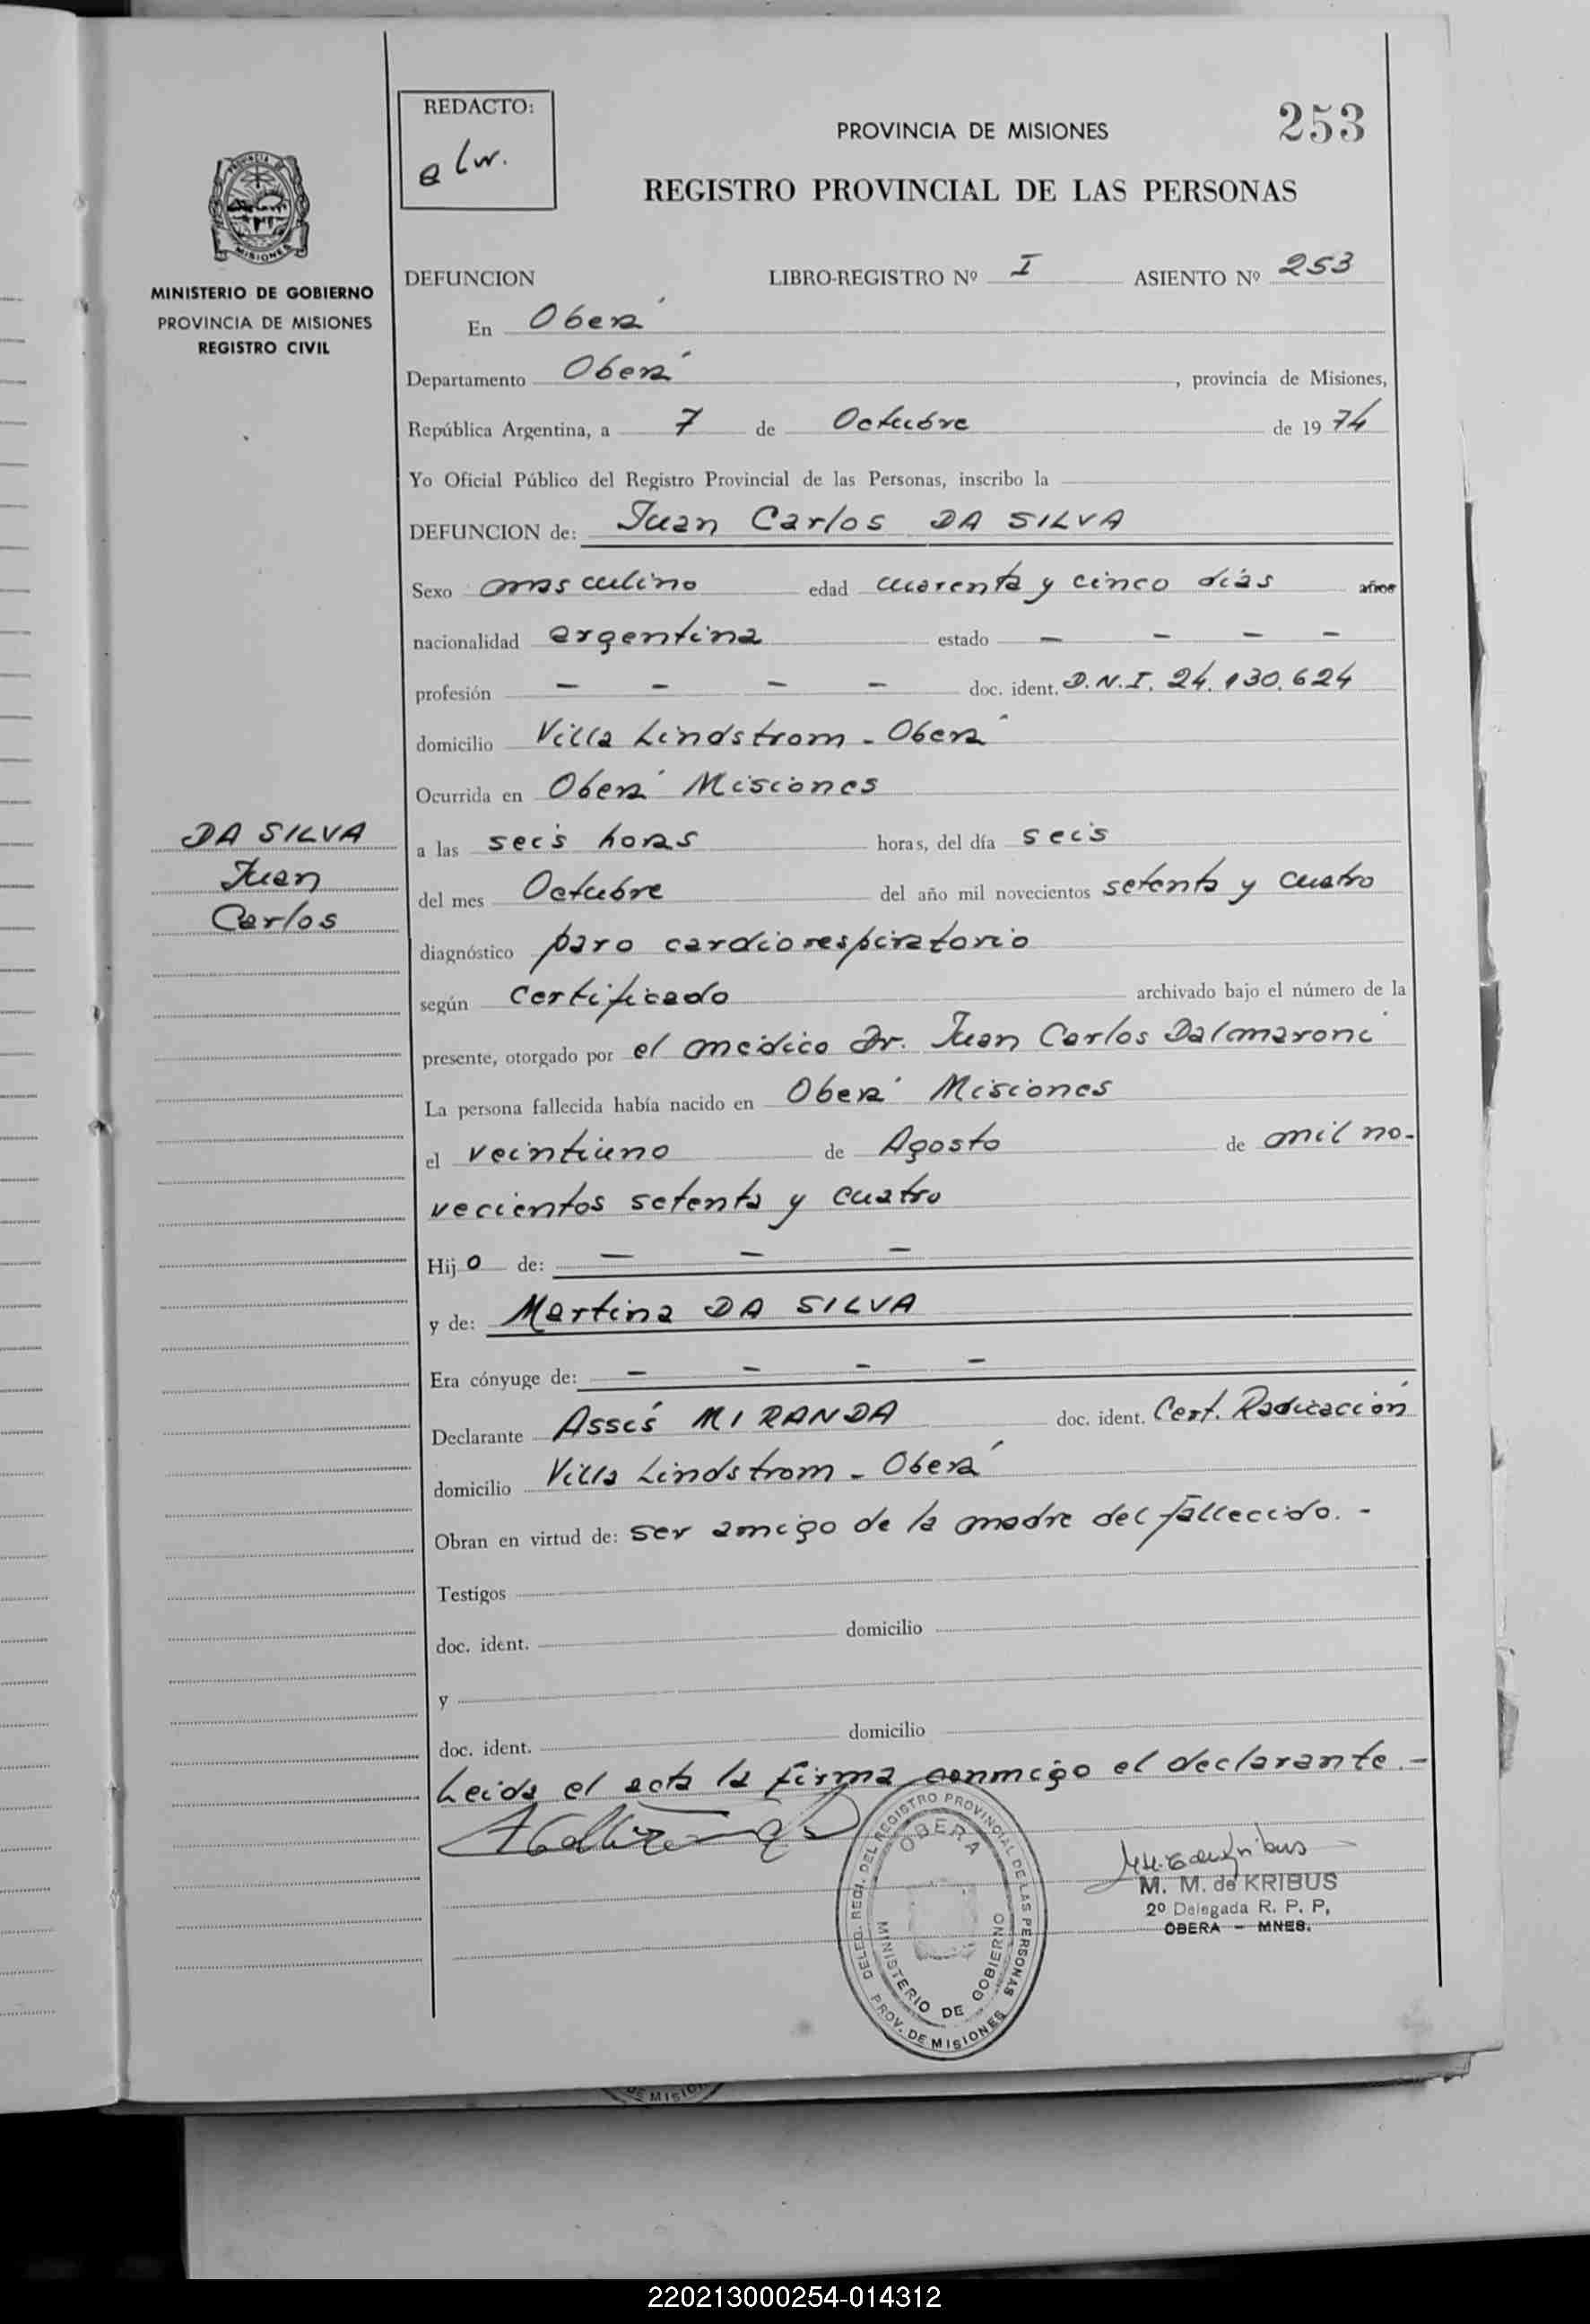 REDACTO:
elw.
PROVINCIA DE MISIONES
253
REGISTRO PROVINCIAL DE LAS PERSONAS
MINISTERIO DE GOBIERNO
PROVINCIA DE MISIONES
REGISTRO CIVIL
DEFUNCION LIBRO-REGISTRO Nº I ASIENTO Nº 253
En Oberá
Departamento Oberá, provincia de Misiones,
República Argentina, a 7 de Octubre de 1974
Yo Oficial Público del Registro Provincial de las Personas, inscribo la
DEFUNCION de: Juan Carlos DA SILVA
Sexo masculino edad cuarenta y cinco días años
nacionalidad argentina estado - - - -
profesión - - - - doc. ident. D.N.I. 24.130.624
domicilio Villa Lindstrom - Oberá
Ocurrida en Oberá Misiones
DA SILVA
Juan
Carlos
a las seis horas horas, del día seis
del mes Octubre del año mil novecientos setenta y cuatro
diagnóstico paro cardiorespiratorio
según certificado archivado bajo el número de la
presente, otorgado por el médico Dr. Juan Carlos Dalmaroni
La persona fallecida había nacido en Oberá Misiones
el veintiuno de Agosto de mil no-
vecientos setenta y cuatro
Hijo de: - - -
y de: Martina DA SILVA
Era cónyuge de: - - - -
Declarante Assis MIRANDA doc. ident. Cert. Radicación
domicilio Villa Lindstrom - Oberá
Obran en virtud de: ser amigo de la madre del fallecido. -
Testigos
doc. ident. domicilio
y
doc. ident. domicilio
Leida el acta la firma conmigo el declarante. -
DELEG. REGI. DEL REGISTRO PROVINCIAL DE LAS PERSONAS
OBERA
MINISTERIO DE GOBIERNO
PROV. DE MISIONES
M. M. de KRIBUS
2º Delegada R. P. P.
OBERA - MNES.
DE MISION
220213000254-014312